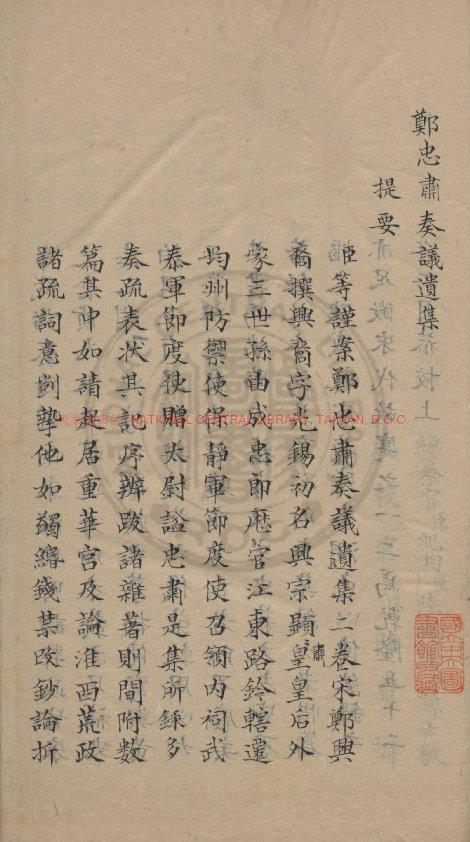 鄭忠肅奏議遺集
提要
臣等謹案鄭忠肅奏議遺集二卷宋鄭興
裔撰興裔字光錫初名興宗顯肅皇后外
家三世孫由成忠郎歷官江東路鈐轄遷
均州防禦使保靜軍節度使召領內祠武
泰軍節度使贈太尉諡忠肅是集所錄多
奏疏表狀其記序辨跋諸雜著則間附數
篇其中如請起居重華宮及論淮西荒政
諸疏詞意剴摯他如蠲緡錢禁改鈔論折
NATIONAL CENTRAL LIBRARY, TAIWAN, R.O.C.
國立中央圖書館收藏